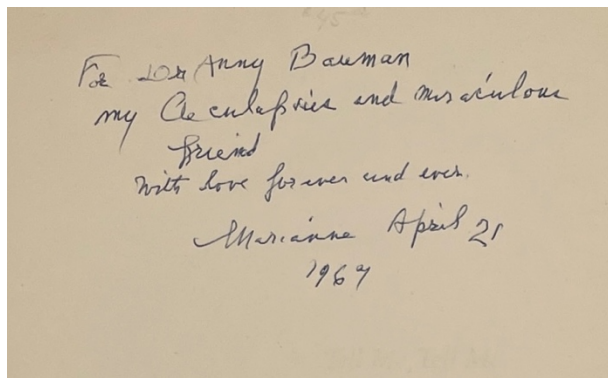 For Dr Anny Bauman
my Aesculapius and miraculous
friend
With love forever and ever.
Marianne April 21
1967